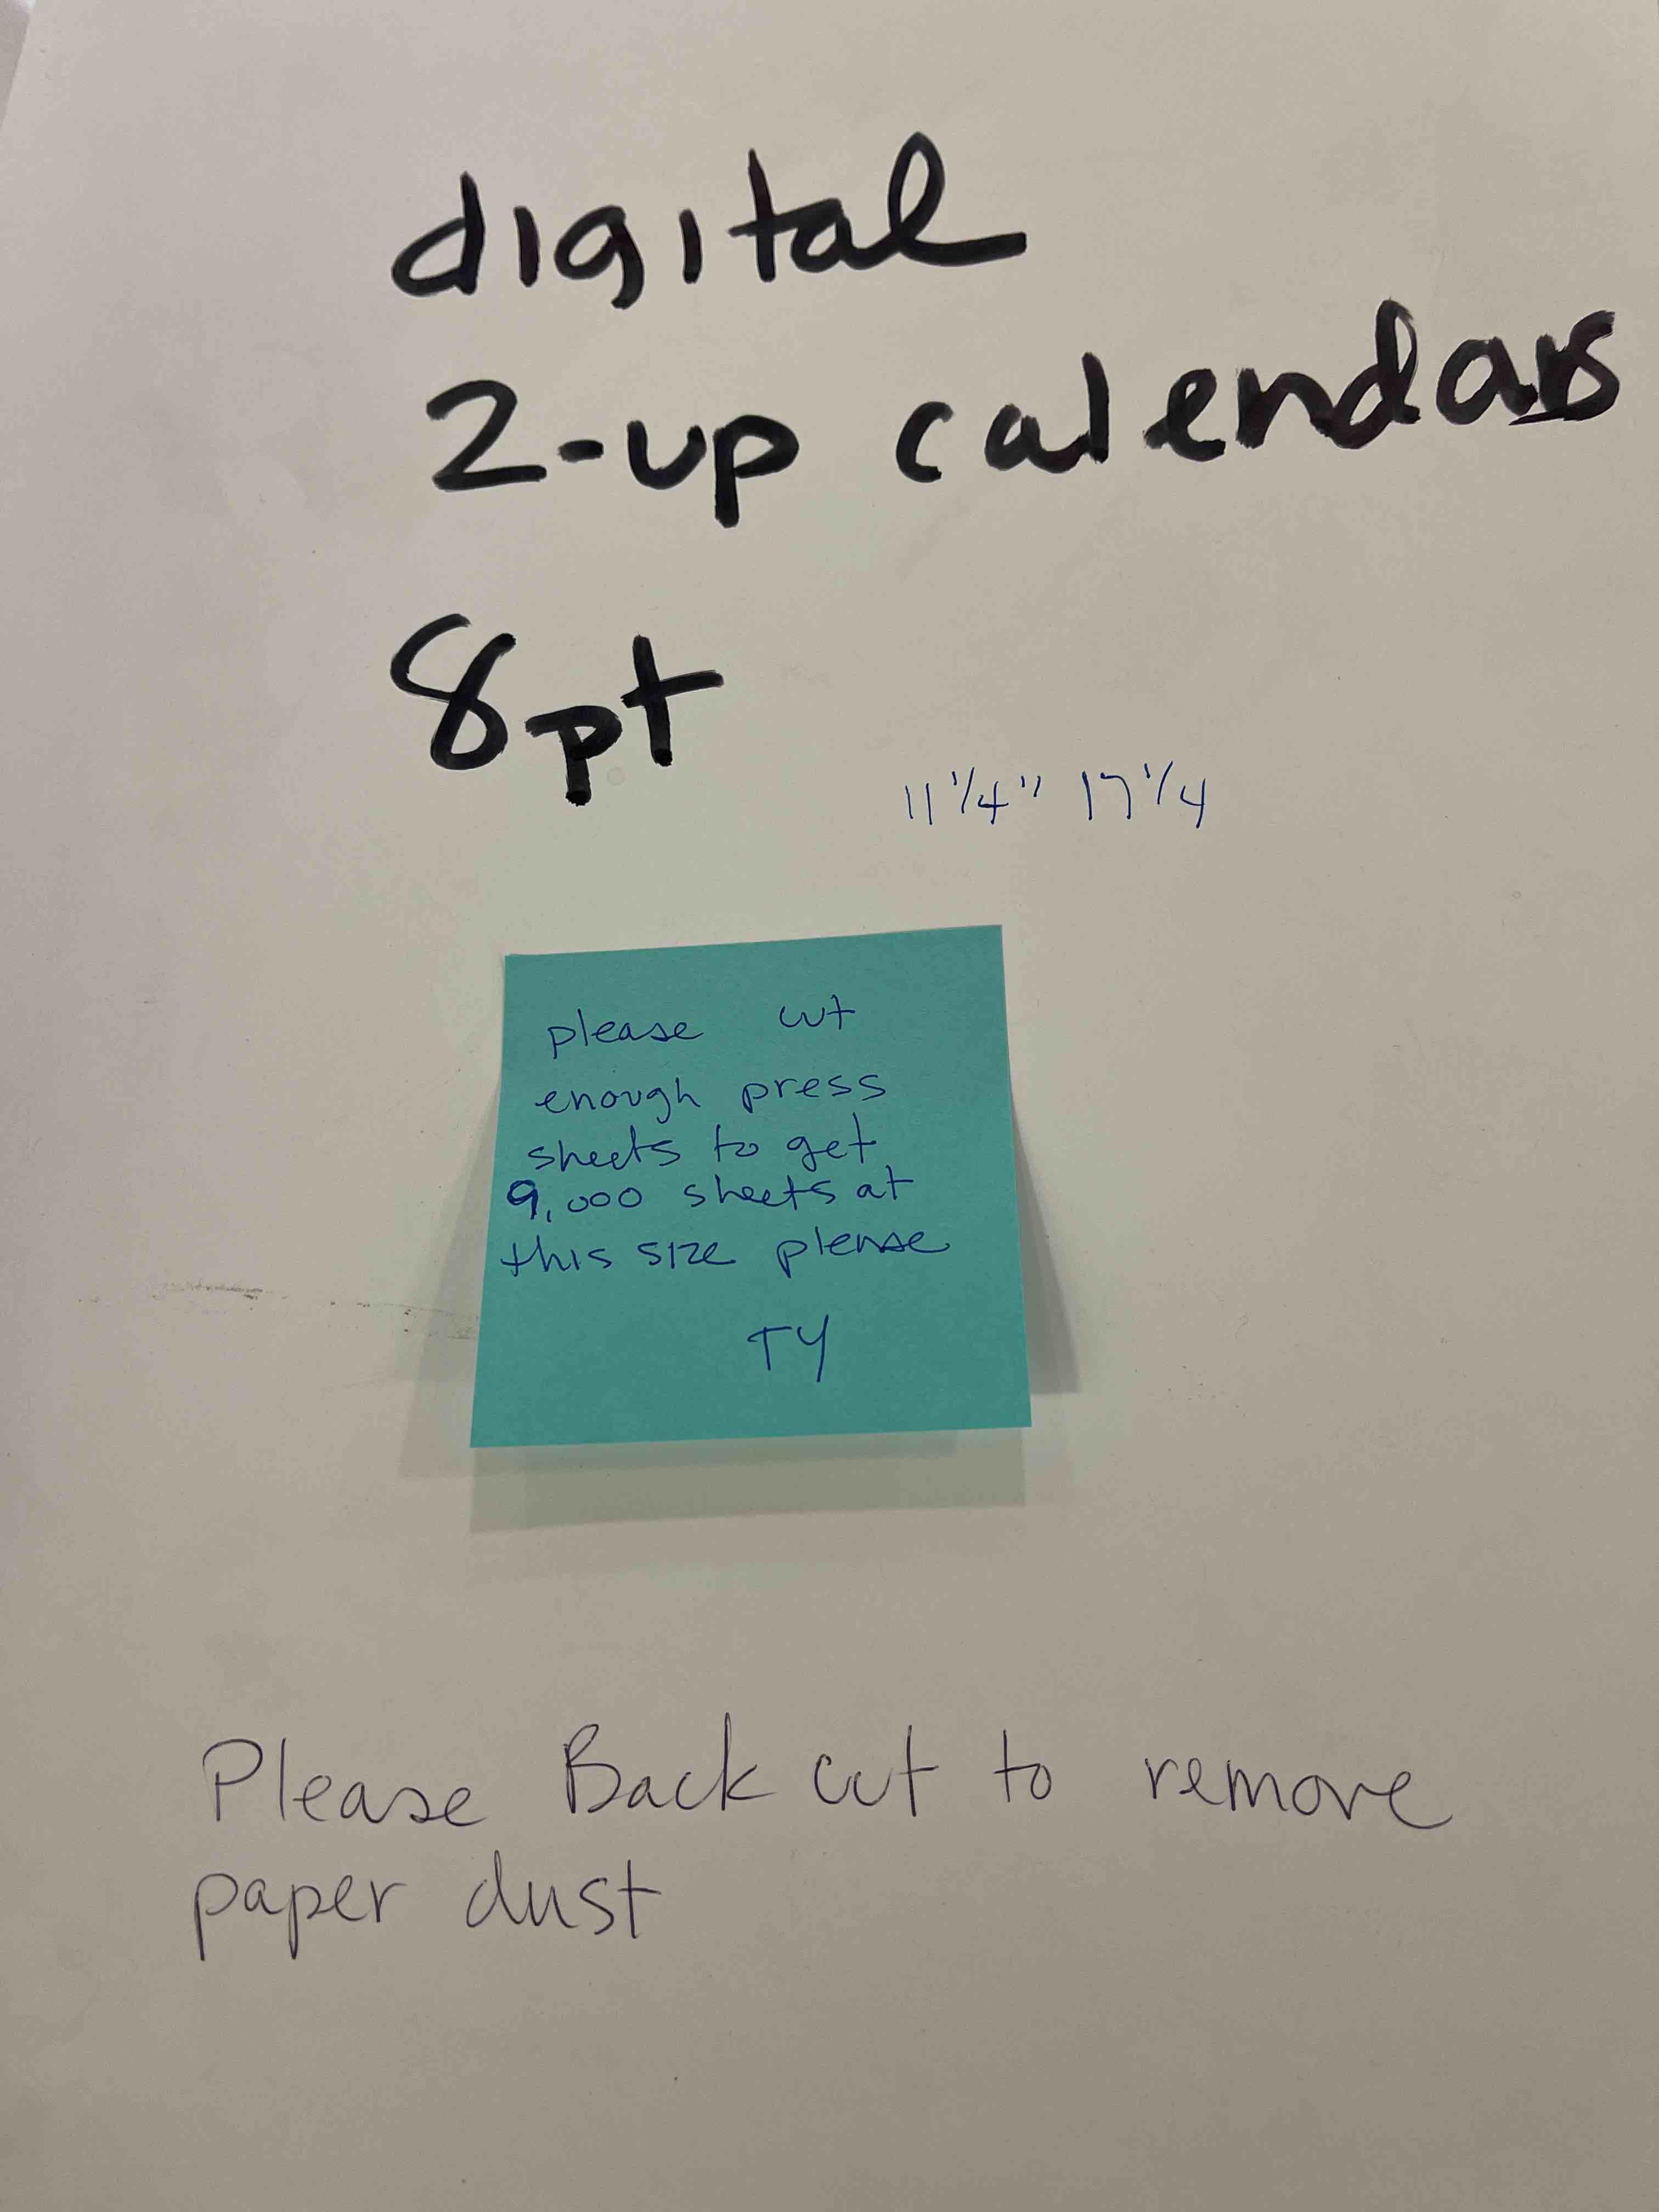 digital
2-up calendars
8pt
11 1/4" 17 1/4
please cut
enough press
sheets to get
9,000 sheets at
this size please
TY
Please Back cut to remove
paper dust